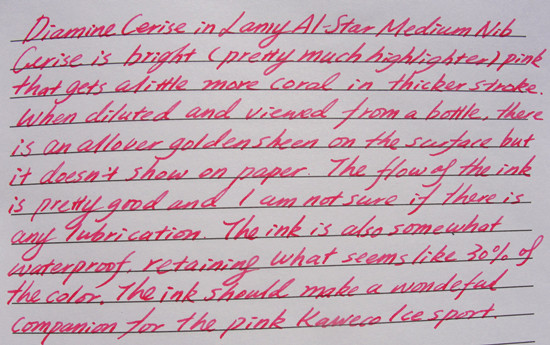 Diamine Cerise in Lamy Al-Star Medium Nib
Cerise is bright (pretty much highlighter) pink
that gets a little more coral in thicker stroke.
When diluted and viewed from a bottle, there
is an allover golden sheen on the surface but
it doesn't show on paper. The flow of the ink
is pretty good and I am not sure if there is
any lubrication. The ink is also somewhat
waterproof, retaining what seems like 30% of
the color. The ink should make a wondeful
companion for the pink Kaweco Ice sport.